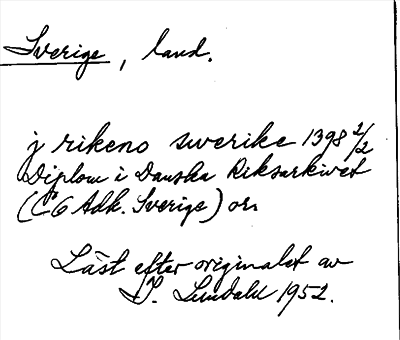 Sverige, land.
j rikeno swerike 1398 2/2
Diplom i Danska Riksarkivet
(C6 Adk. Sverige) or.
Läst efter originalet av
I. Lundahl 1952.